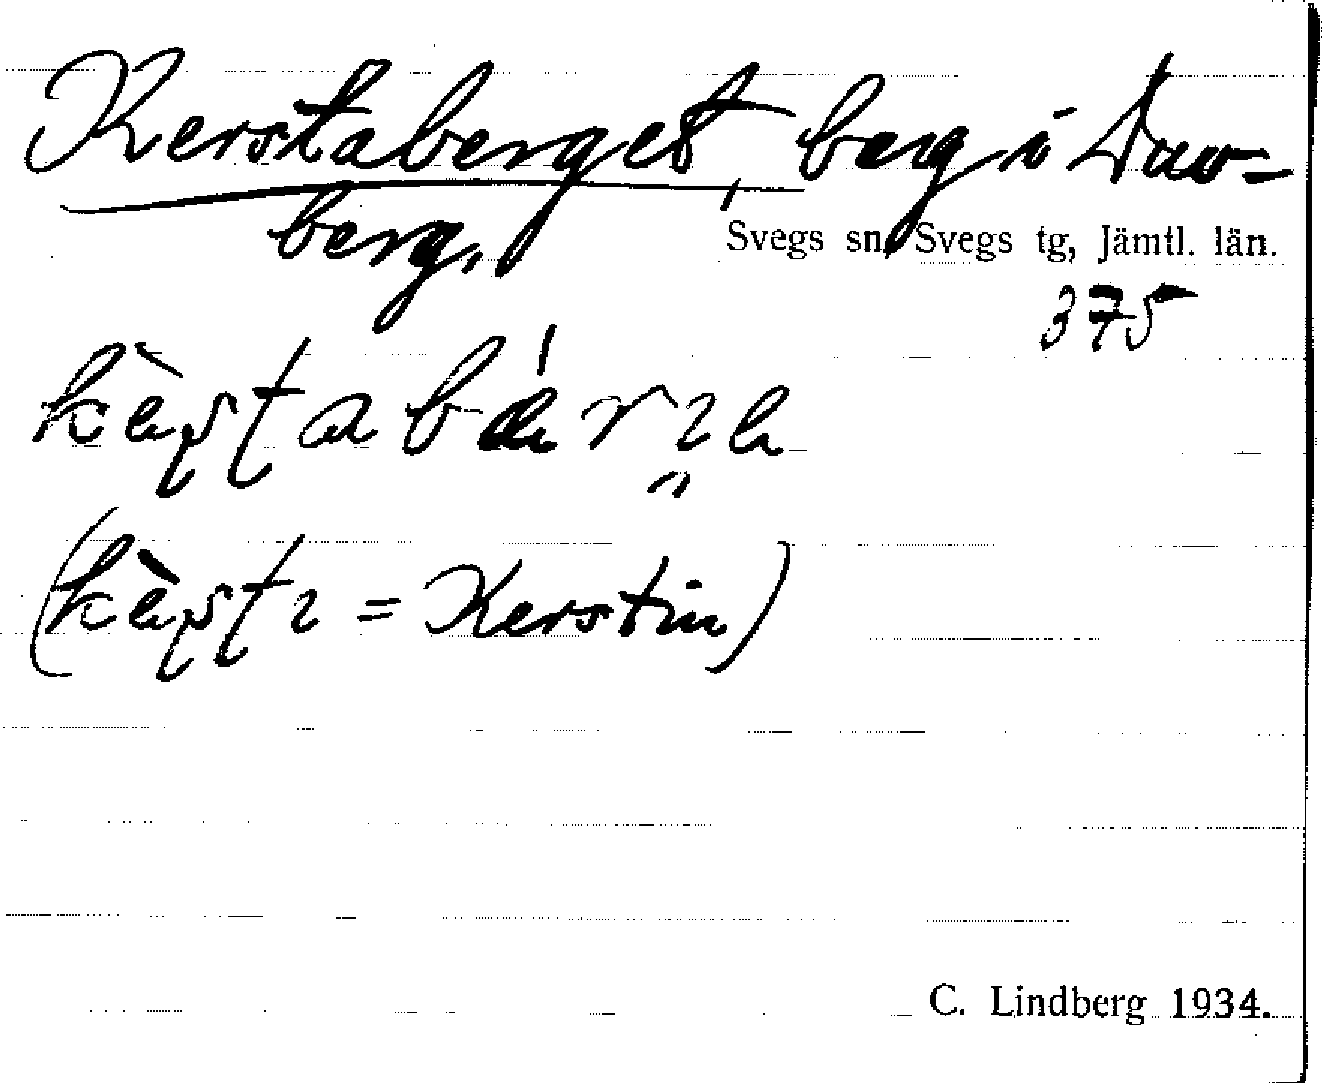 Kerstaberget, berg i Duv-
berg.
Svegs sn, Svegs tg, Jämtl. län.
375
(          = Kerstin)
C. Lindberg 1934.